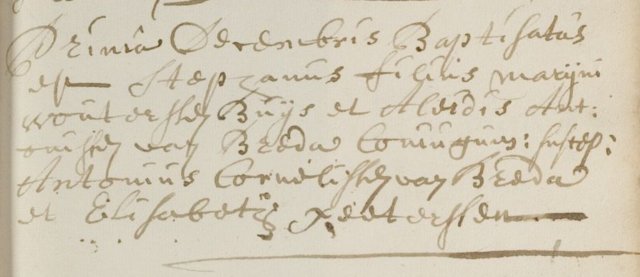 Prima Decembris Baptisatus
est Stephanus filius Marijni
Wouterssen Buijs et Aleidis Ant:
onissen van Breda Coniugum: suscep:
Antonius Cornelissen van Breda
et Elisabeth Peeterssen